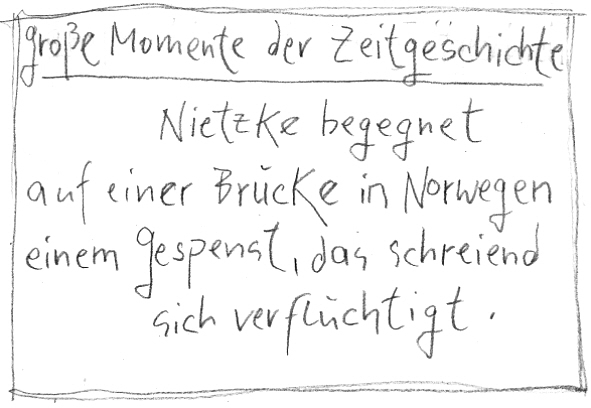 große Momente der Zeitgeschichte
Nietzke begegnet
auf einer Brücke in Norwegen
einem Gespenst, das schreiend
sich verflüchtigt.